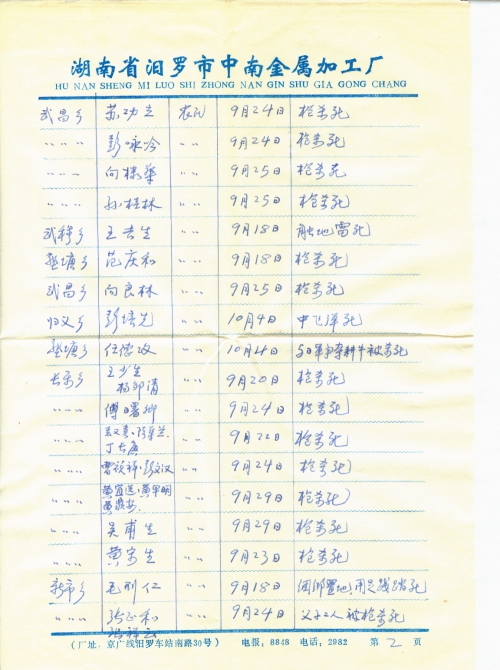 湖南省汨罗市中南金属加工厂
HU NAN SHENG MI LUO SHI ZHONG NAN GIN SHU GIA GONG CHANG
武昌乡 苏功立 农民 9月24日 枪杀死
〃〃〃 彭咏冷 〃〃 9月24日 枪杀死
〃〃〃 向 〃〃 9月25日 枪杀死
〃〃〃 孙桂林 〃〃 9月25日 枪杀死
武穆乡 王吉生 〃〃 9月18日 触地雷死
塘乡 范庆和 〃〃 9月18日 枪杀死
武昌乡 向良林 〃〃 9月25日 枪杀死
归义乡 彭培先 〃〃 10月4日 中飞弹死
塘乡 任德 〃〃 10月4日 与日军争夺耕牛被杀死
长乐乡 王少生 杨 清 〃〃 9月20日 枪杀死
〃〃〃 傅曙卿 〃〃 9月24日 枪杀死
〃〃〃 丁 〃〃 9月22日 枪杀死
〃〃〃 曹祯祥、彭文汉 〃〃 9月24日 枪杀死
〃〃〃 黄 黄 明 黄 〃〃 9月29日 枪杀死
〃〃〃 吴甫生 〃〃 9月29日 枪杀死
〃〃〃 黄宋生 〃〃 9月23日 枪杀死
新市乡 毛刑仁 〃〃 9月18日 死
〃〃〃 张正和 张祥云 〃〃 9月24日 父子二人被枪杀死
(厂址：京广线汨罗车站南路30号) 电报：8848 电话：2982 第2页